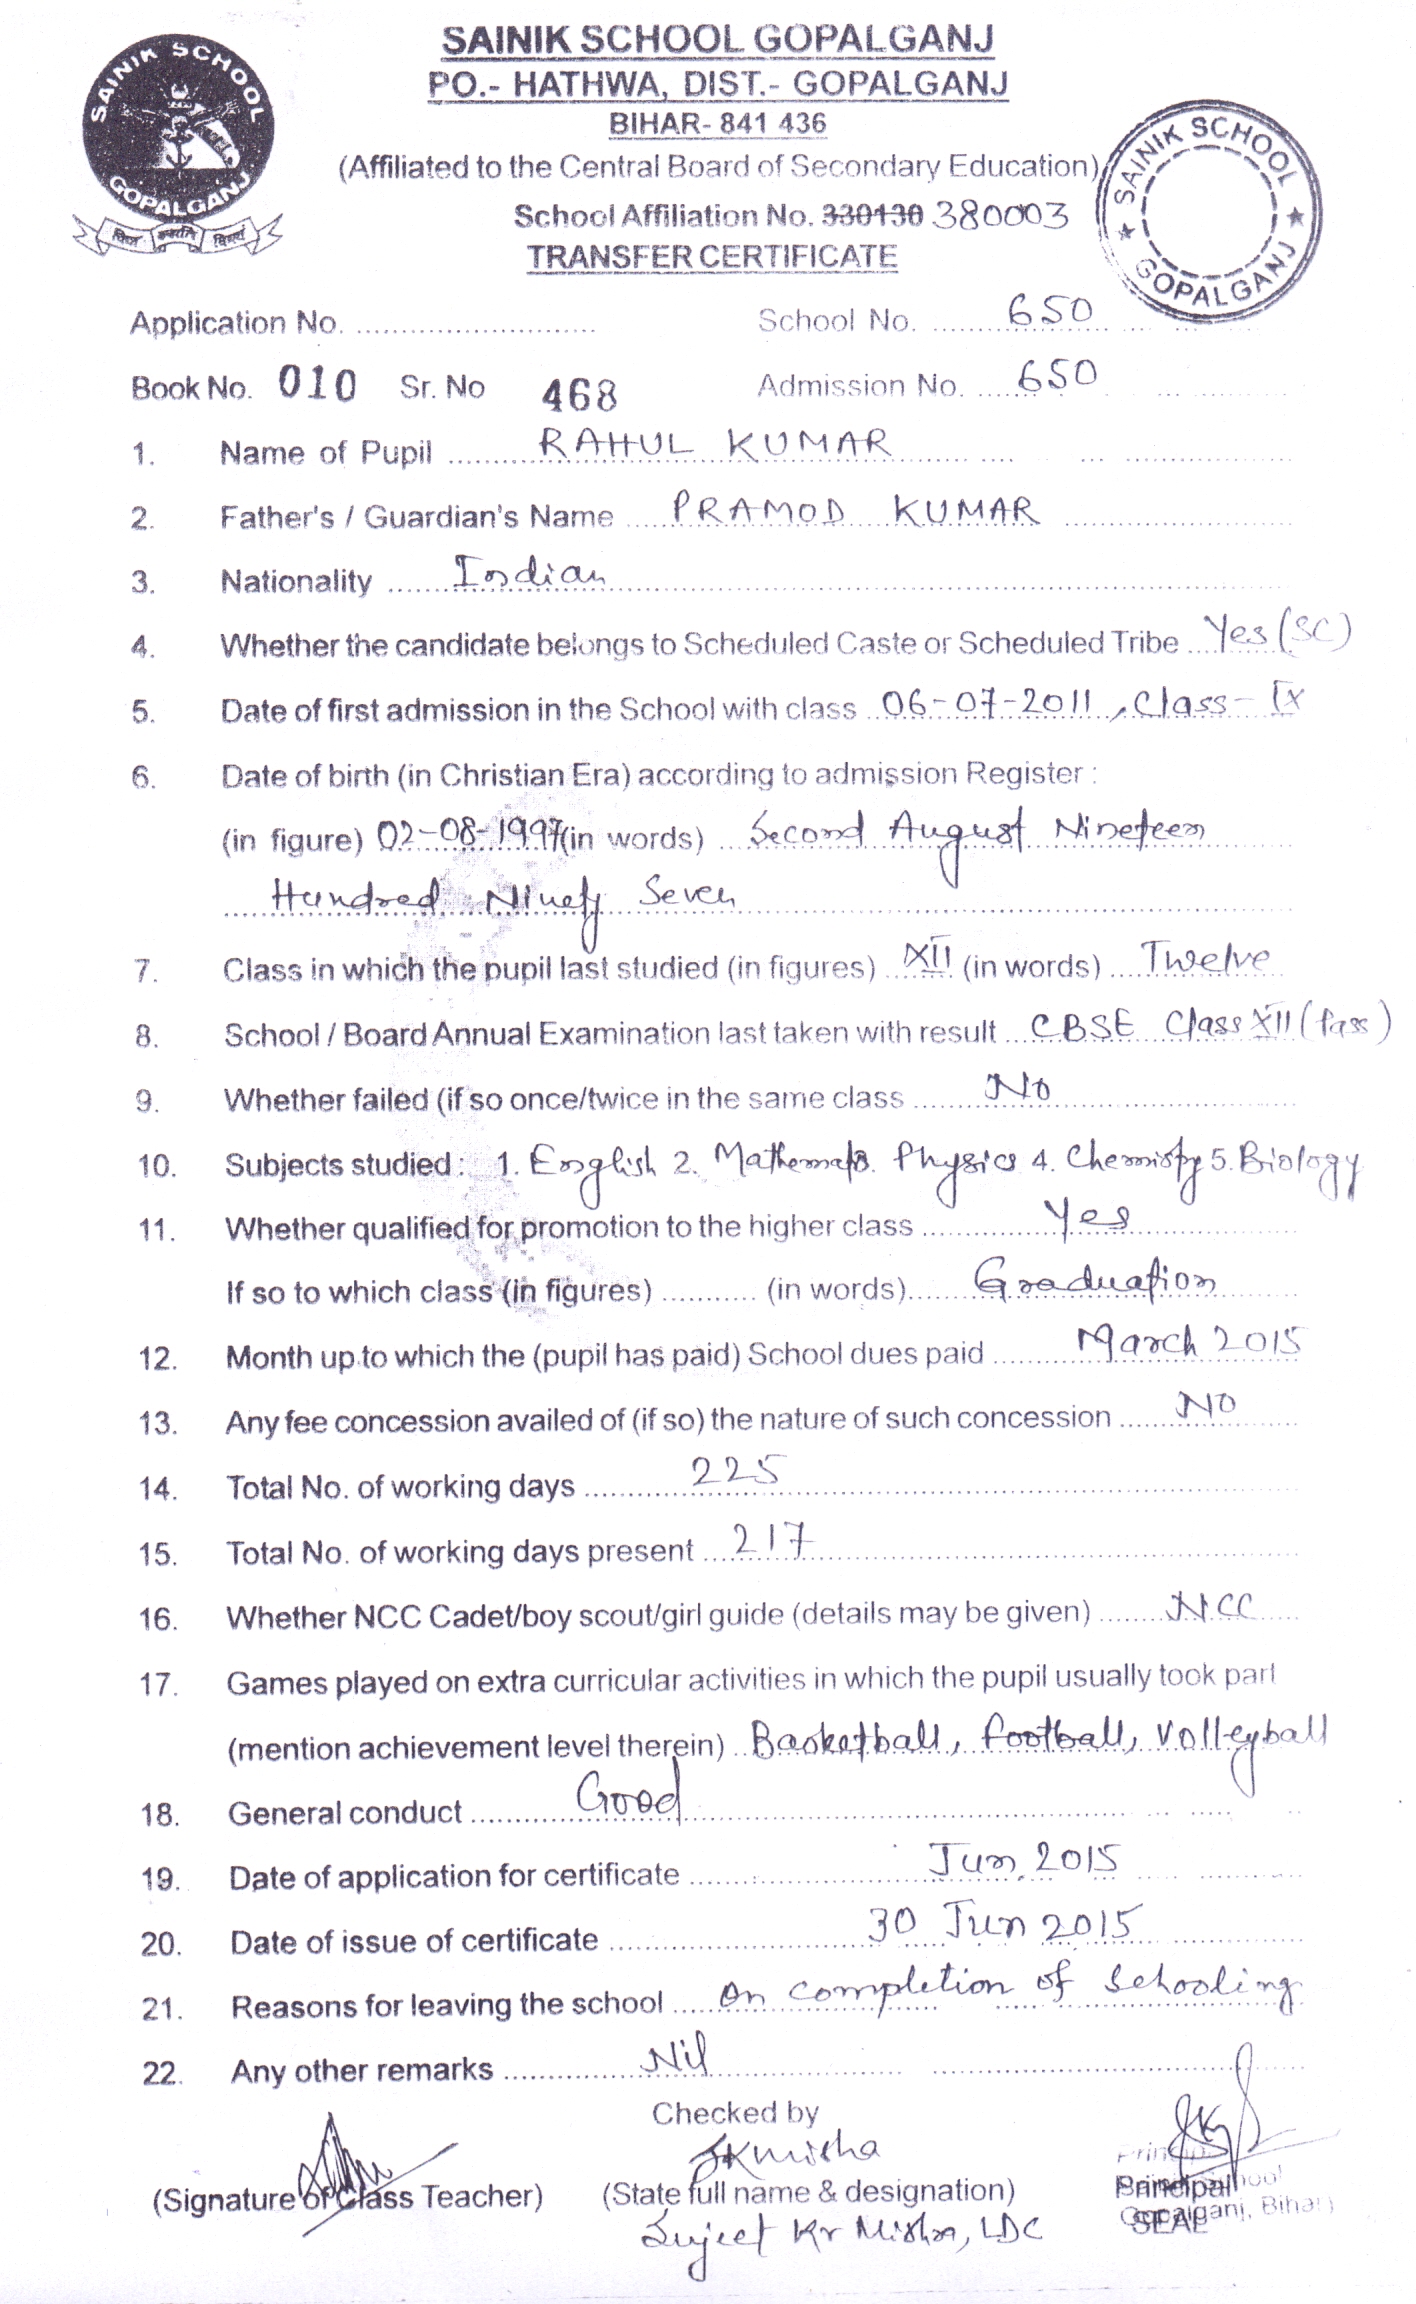 SAINIK SCHOOL GOPALGANJ
SAINIK SCHOOL GOPALGANJ
PO.- HATHWA, DIST.- GOPALGANJ
BIHAR- 841 436
(Affiliated to the Central Board of Secondary Education)
SAINIK SCHOOL ★ GOPALGANJ ★
School Affiliation No. 330130 380003
TRANSFER CERTIFICATE
Application No. .......... School No. 650
Book No. 010 Sr. No 468 Admission No. 650
1. Name of Pupil RAHUL KUMAR
2. Father's / Guardian's Name PRAMOD KUMAR
3. Nationality Indian
4. Whether the candidate belongs to Scheduled Caste or Scheduled Tribe Yes (SC)
5. Date of first admission in the School with class 06-07-2011, Class- IX
6. Date of birth (in Christian Era) according to admission Register :
(in figure) 02-08-1997 (in words) Second August Nineteen
Hundred Ninety Seven
7. Class in which the pupil last studied (in figures) XII (in words) Twelve
8. School / Board Annual Examination last taken with result CBSE Class XII (Pass)
9. Whether failed (if so once/twice in the same class No
10. Subjects studied : 1. English 2. Mathemats. Physics 4. Chemistry 5. Biology
11. Whether qualified for promotion to the higher class Yes
If so to which class (in figures) .......... (in words) Graduation
12. Month up to which the (pupil has paid) School dues paid March 2015
13. Any fee concession availed of (if so) the nature of such concession No
14. Total No. of working days 225
15. Total No. of working days present 217
16. Whether NCC Cadet/boy scout/girl guide (details may be given) NCC
17. Games played on extra curricular activities in which the pupil usually took part
(mention achievement level therein) Basketball, football, Volleyball
18. General conduct Good
19. Date of application for certificate Jun, 2015
20. Date of issue of certificate 30 Jun 2015
21. Reasons for leaving the school On completion of Schooling
22. Any other remarks Nil
Checked by
SKMisha
(Signature of Class Teacher) (State full name & designation) Principal
Sujeet Kr Mishra, LDC SEAL
Gopalganj, Bihar)